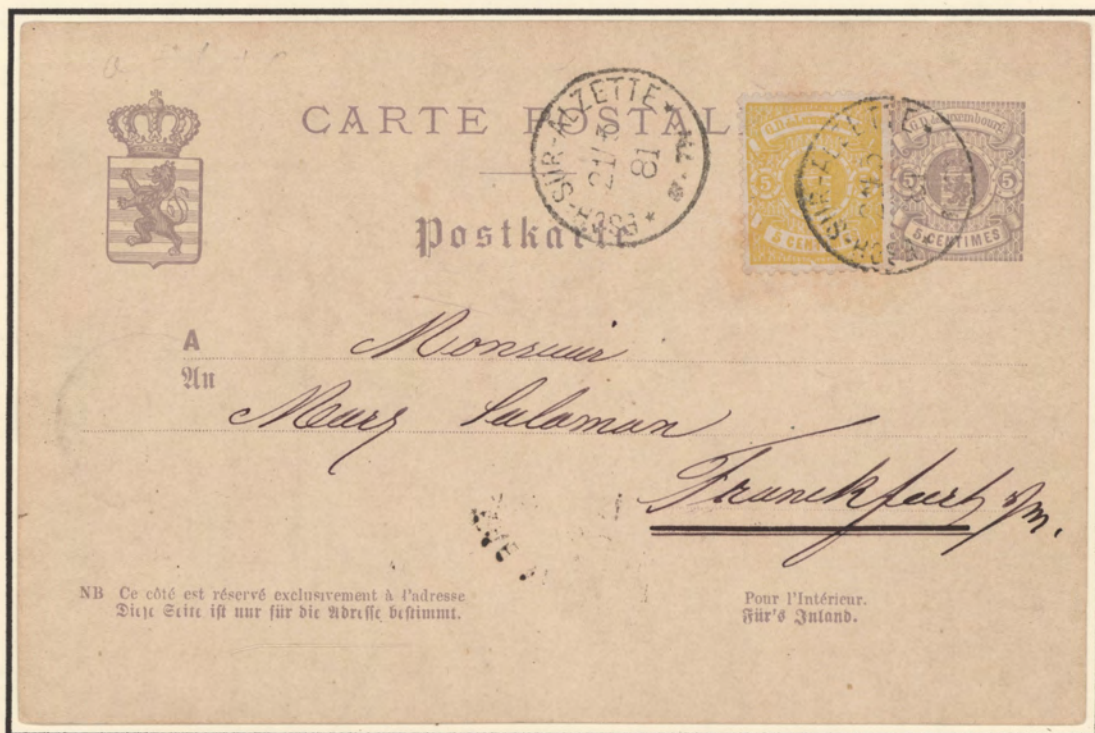 CARTE POSTALE
Postkarte
ESCH-SUR-ALZETTE
21/3
81
7-8
G.D. de Luxembourg
5 5
5 CENTIMES
ESCH-SUR-ALZETTE
G.D. de Luxembourg
5 5
5 CENTIMES
A Monsieur
An
Marx Salaman
Franckfurt s/m.
NB Ce côté est réservé exclusivement à l'adresse
Diese Seite ist nur für die Adresse bestimmt.
Pour l'Intérieur.
Für's Inland.